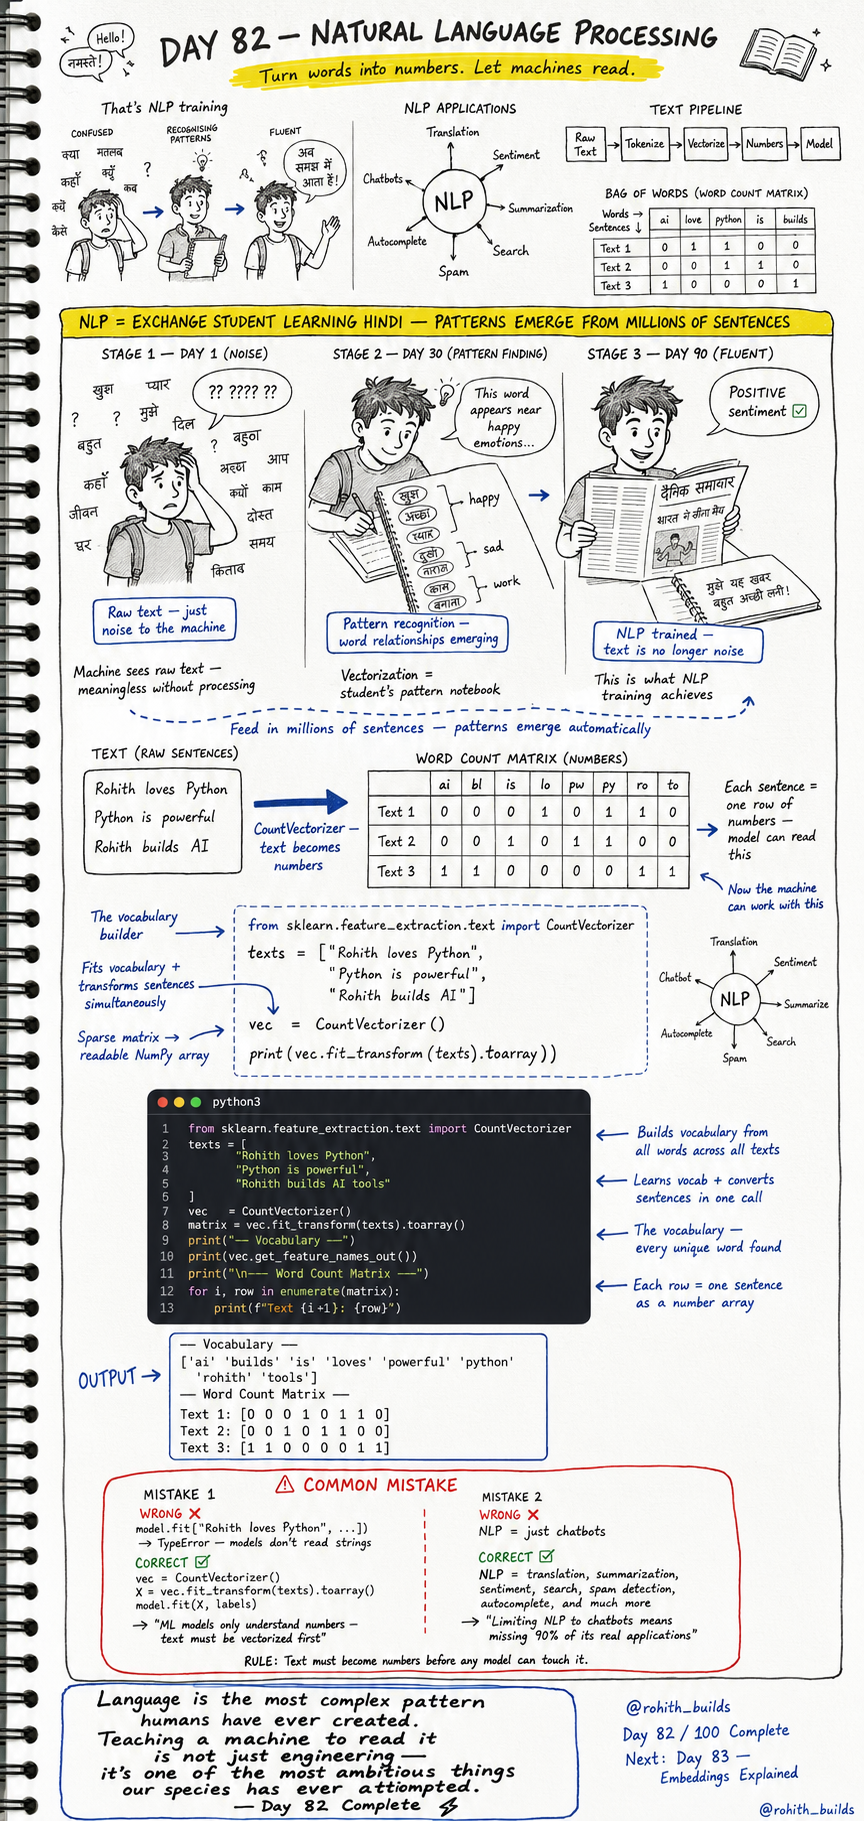 Hello!
नमस्ते!
DAY 82 — NATURAL LANGUAGE PROCESSING
Turn words into numbers. Let machines read.
That's NLP training
CONFUSED
क्या मतलब
कहाँ क्यूँ
कब
?
कैसे
RECOGNISING
PATTERNS
FLUENT
अब
समझ में
आता है!
NLP APPLICATIONS
Translation
Sentiment
Chatbots
NLP
Summarization
Autocomplete
Search
Spam
TEXT PIPELINE
Raw Text → Tokenize → Vectorize → Numbers → Model
BAG OF WORDS (WORD COUNT MATRIX)
Words →
Sentences ↓
ai love python is builds
Text 1 0 1 1 0 0
Text 2 0 0 1 1 0
Text 3 1 0 0 0 1
NLP = EXCHANGE STUDENT LEARNING HINDI — PATTERNS EMERGE FROM MILLIONS OF SENTENCES
STAGE 1 — DAY 1 (NOISE)
खुश प्यार
?? ???? ??
? ? मुझे दिल
बहुत ?
आप
कहाँ क्यों काम
जीवन दोस्त
घर समय
किताब
Raw text — just
noise to the machine
Machine sees raw text —
meaningless without processing
STAGE 2 — DAY 30 (PATTERN FINDING)
This word
appears near
happy
emotions...
खुश
अच्छा
प्यार
happy
दुखी
नाराज
sad
काम
बनाना
work
Pattern recognition —
word relationships emerging
Vectorization =
student's pattern notebook
STAGE 3 — DAY 90 (FLUENT)
POSITIVE
sentiment ☑
दैनिक समाचार
भारत ने जीता मैच
मुझे यह खबर
बहुत अच्छी लगी!
NLP trained —
text is no longer noise
This is what NLP
training achieves
Feed in millions of sentences — patterns emerge automatically
TEXT (RAW SENTENCES)
Rohith loves Python
Python is powerful
Rohith builds AI
CountVectorizer —
text becomes
numbers
WORD COUNT MATRIX (NUMBERS)
ai bl is lo pw py ro to
Text 1 0 0 0 1 0 1 1 0
Text 2 0 0 1 0 1 1 0 0
Text 3 1 1 0 0 0 0 1 1
Each sentence =
one row of
numbers —
model can read
this
Now the machine
can work with this
The vocabulary
builder
Fits vocabulary +
transforms sentences
simultaneously
Sparse matrix →
readable NumPy array
from sklearn.feature_extraction.text import CountVectorizer
texts = ["Rohith loves Python",
"Python is powerful",
"Rohith builds AI"]
vec = CountVectorizer()
print(vec.fit_transform(texts).toarray())
Translation
Sentiment
Chatbot
NLP
Summarize
Autocomplete
Search
Spam
python3
1 from sklearn.feature_extraction.text import CountVectorizer
2 texts = [
3 "Rohith loves Python",
4 "Python is powerful",
5 "Rohith builds AI tools"
6 ]
7 vec = CountVectorizer()
8 matrix = vec.fit_transform(texts).toarray()
9 print("—— Vocabulary ——")
10 print(vec.get_feature_names_out())
11 print("\n—— Word Count Matrix ——")
12 for i, row in enumerate(matrix):
13 print(f"Text {i+1}: {row}")
Builds vocabulary from
all words across all texts
Learns vocab + converts
sentences in one call
The vocabulary —
every unique word found
Each row = one sentence
as a number array
OUTPUT →
—— Vocabulary ——
['ai' 'builds' 'is' 'loves' 'powerful' 'python'
'rohith' 'tools']
—— Word Count Matrix ——
Text 1: [0 0 0 1 0 1 1 0]
Text 2: [0 0 1 0 1 1 0 0]
Text 3: [1 1 0 0 0 0 1 1]
⚠ COMMON MISTAKE
MISTAKE 1
WRONG ✗
model.fit["Rohith loves Python", ...])
→ TypeError — models don't read strings
CORRECT ☑
vec = CountVectorizer()
X = vec.fit_transform(texts).toarray()
model.fit(X, labels)
→ "ML models only understand numbers —
text must be vectorized first"
MISTAKE 2
WRONG ✗
NLP = just chatbots
CORRECT ☑
NLP = translation, summarization,
sentiment, search, spam detection,
autocomplete, and much more
→ "Limiting NLP to chatbots means
missing 90% of its real applications"
RULE: Text must become numbers before any model can touch it.
Language is the most complex pattern
humans have ever created.
Teaching a machine to read it
is not just engineering —
it's one of the most ambitious things
our species has ever attiompted.
— Day 82 Complete ⚡
@rohith_builds
Day 82 / 100 Complete
Next: Day 83 —
Embeddings Explained
@rohith_builds